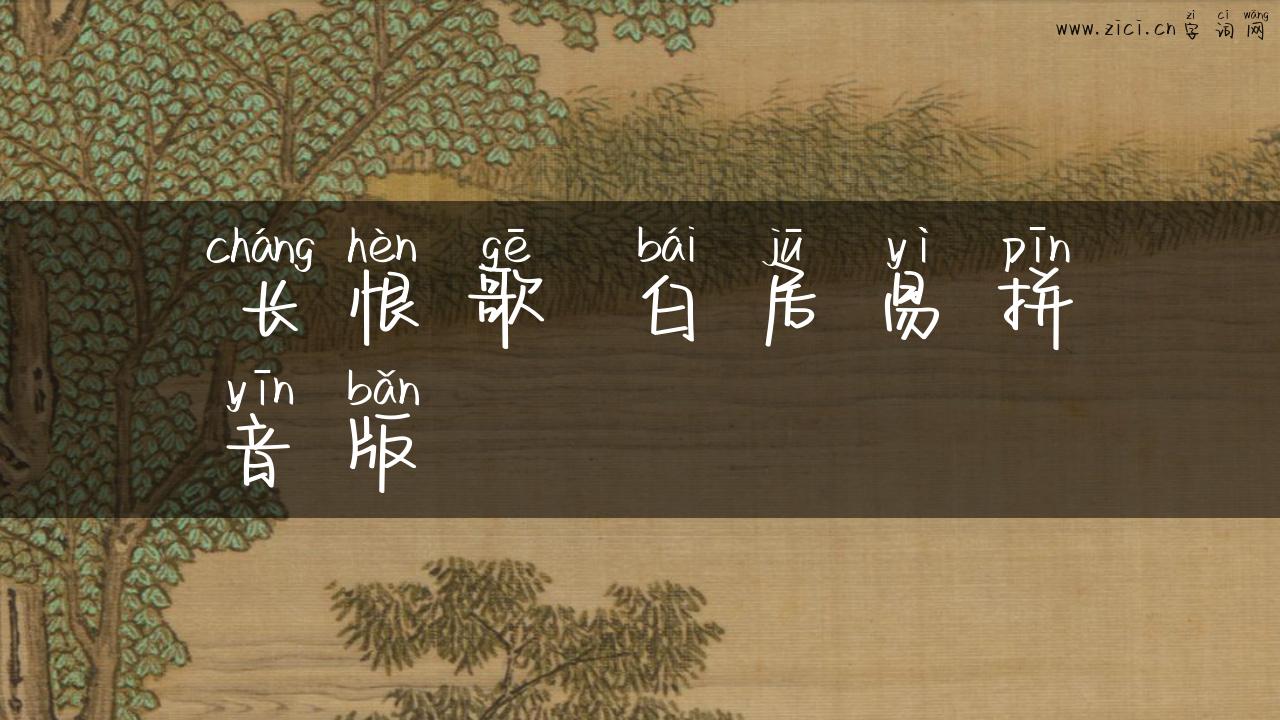 zì cí wǎng
www.zici.cn 字词网
cháng hèn gē bái jū yì pīn
长恨歌 白居易拼
yīn bǎn
音版